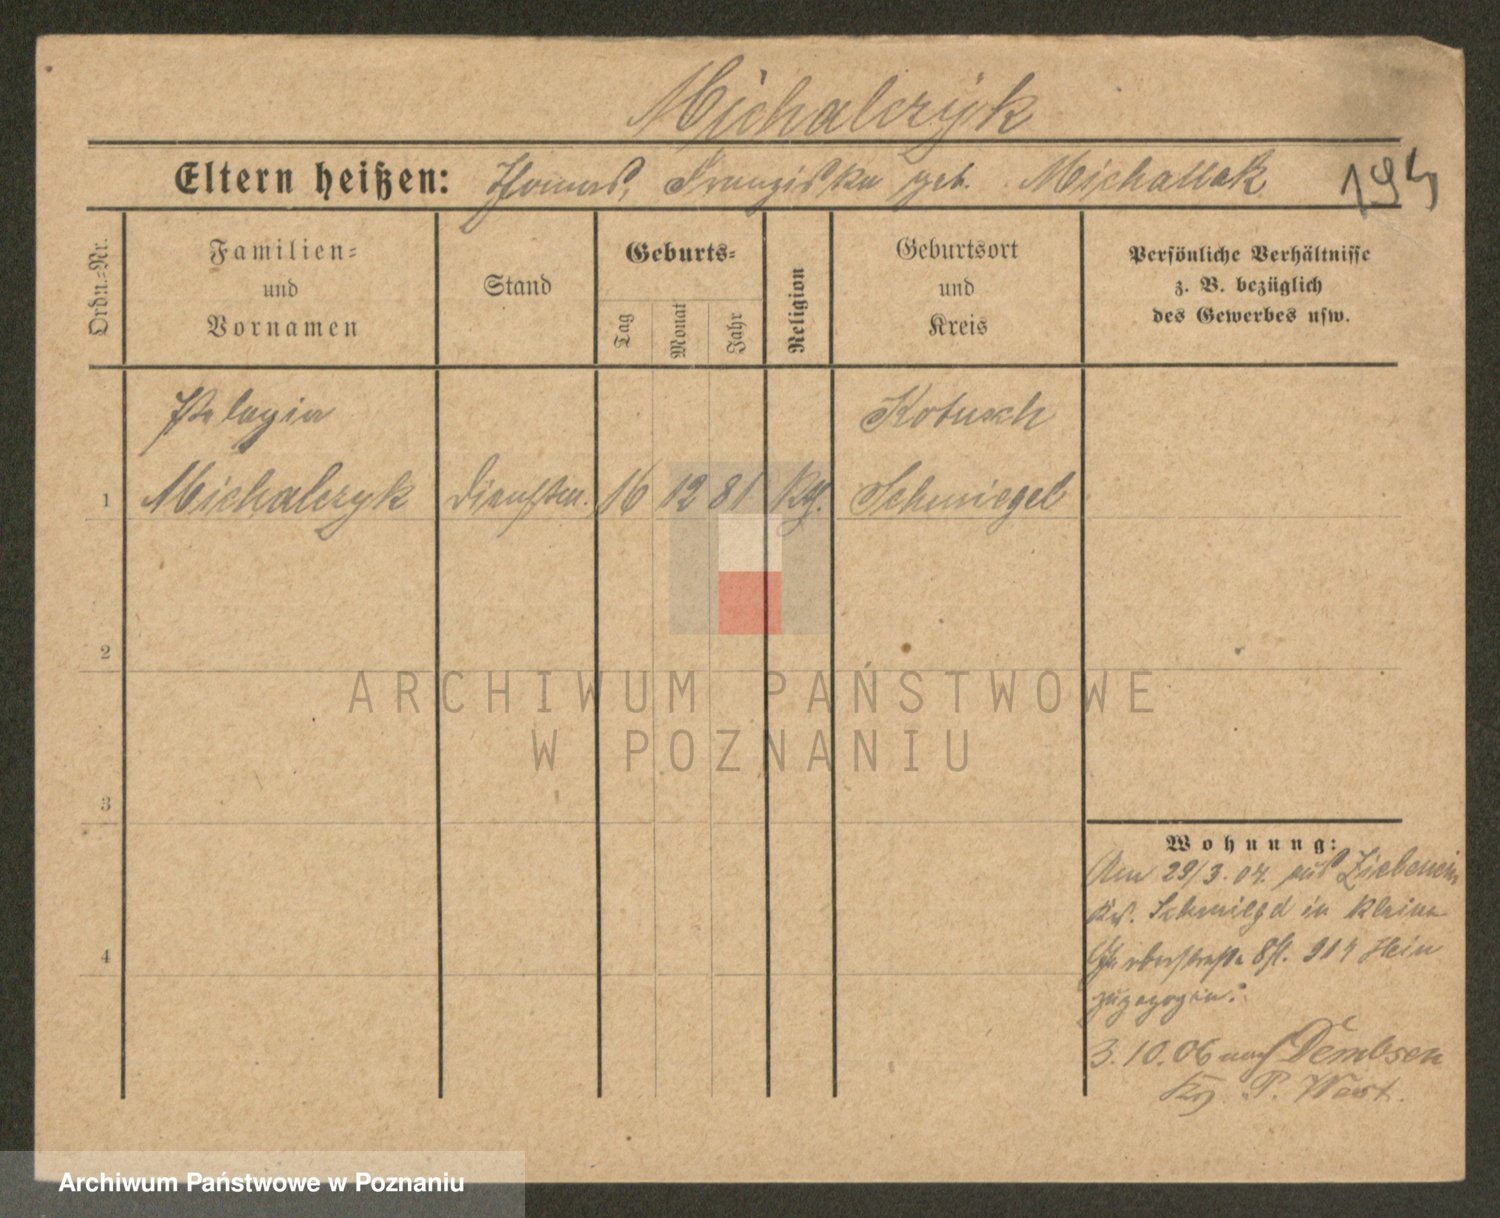 Michalczyk
Eltern heißen: Thomas, Franziska geb. Michallak
194
Ordn.-Nr.
Familien-
und
Vornamen
Stand
Geburts-
Tag
Monat
Jahr
Religion
Geburtsort
und
Kreis
Persönliche Verhältnisse
z. B. bezüglich
des Gewerbes usw.
Pelagia Kotusch
1 Michalczyk 16 12 81 Schmiegel
2
ARCHIWUM PAŃSTWOWE
W POZNANIU
3
Wohnung:
Am 29/3. 04. aus
Kr. in Kleine
4
zugezogen.
3. 10. 06 nach Dembsen
P. West.
Archiwum Państwowe w Poznaniu